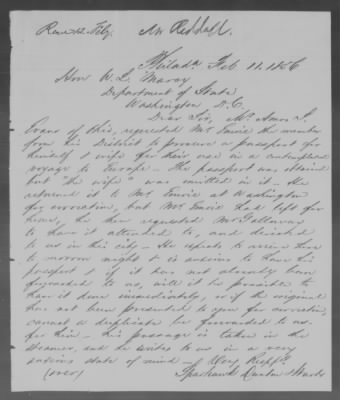 Rec. 12. Feby. Mr Reddall.
Philada Feb 11. 1856
Hon W. L. Marcy
Department of State
Washington D.C.
Dear Sir, Mr Amos S.
Evans of this, requested Mr the member
from his District to procure a passport for
himself & wife for their use in a contemplated
voyage to Europe - The passport was obtained
but the wife was omitted in it - He
returned it to Mr at Washington
for correction, but Mr had left for
home, he then requested Mr Galloway
to have it attended to, and decided
to us in this city - He expects to arrive here
to morrow night & is anxious to have his
passport & if it has not already been
forwarded to us, will it be possible to
have it done immediately, or if the original
has not been presented to you for correction,
cannot a duplicate be forwarded to us
for him - his passage is taken in the
steamer, and he writes to us in a very
anxious state of mind - Very Respfy
(over) Sparhawk Dunton & Wurts